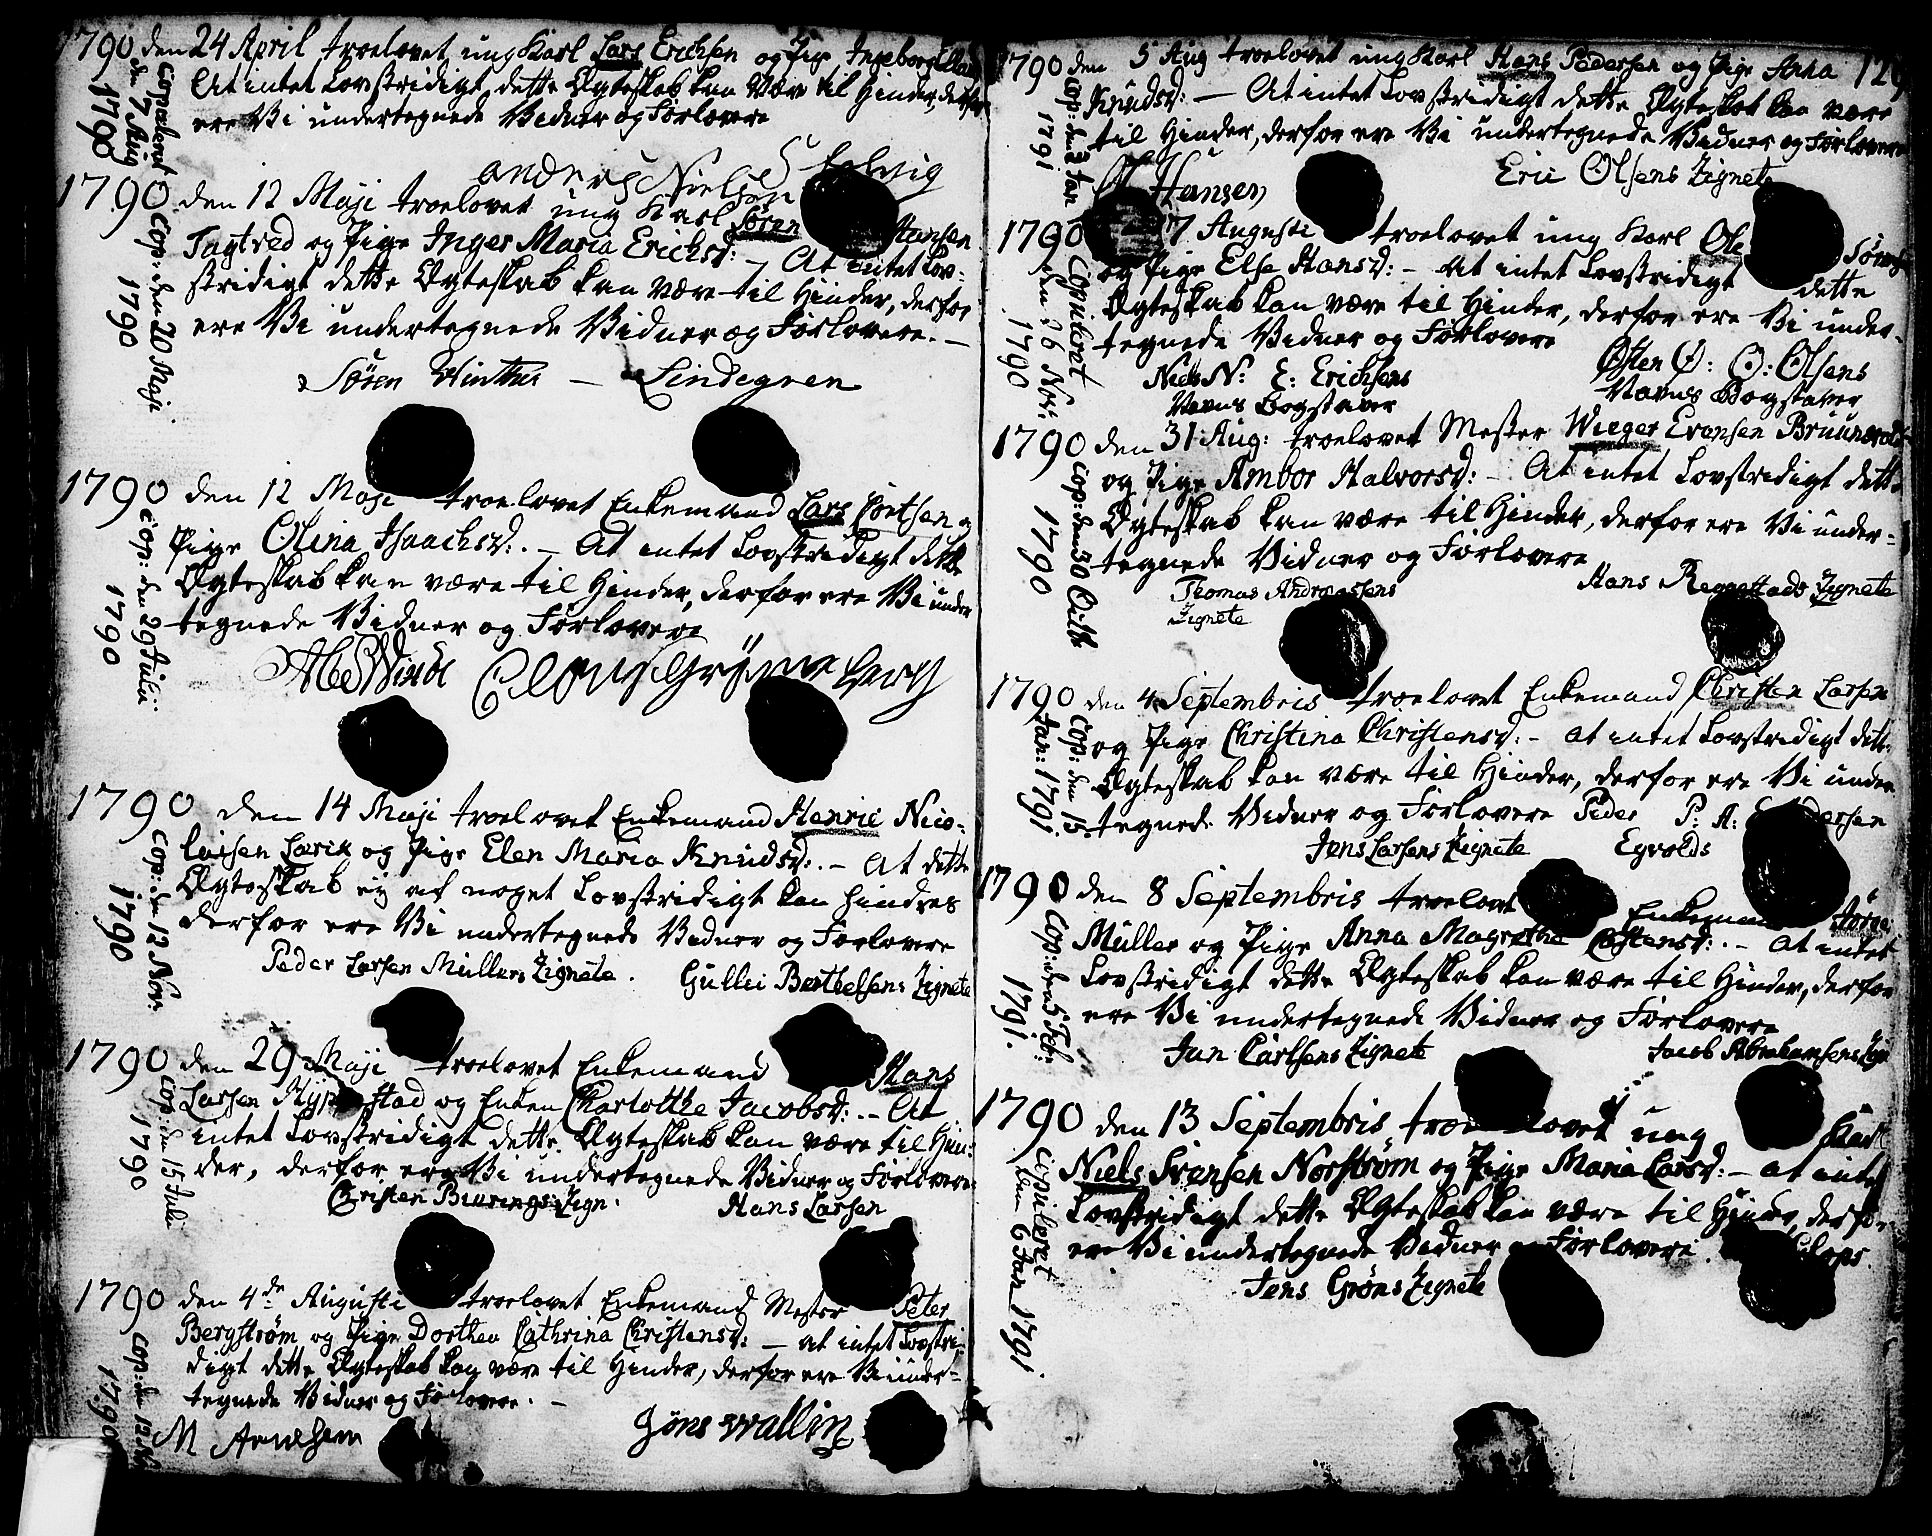 1790 den 24 April troelovet ung Karl Lars Erichsen og Pige Ingeborg
At intet Lovstridigt dette Ægteskab kan være til Hinder, derfor
ere Vi undertegnede Vidner og Forlovere
Copuleret den 7 Aug 1790
Anders Nielsen
1790 den 12 Maji troelovet ung Karl Søren Hansen
Tagtved og Pige Inger Maria Erichsd: - At intet Lov-
stridigt dette Ægteskab kan være til Hinder, derfor
ere Vi undertegnede Vidner og Forlovere. -
Cop: den 20 Maji 1790
Søren Winther - Lindegren
1790 den 12 Maji troelovet Enkemand Lars og
Pige Olina Isaachsd: . - At intet Lovstridigt dette
Ægteskab kan være til Hinder, derfor ere Vi under
tegnede Vidner og Forlovere
Cop: den 29 Julii 1790
1790 den 14 Maji troelovet Enkemand Henric Nico-
laisen og Pige Elen Maria Knudsd: . - At dette
Ægteskab ey af noget Lovstridigt kan hindres
derfor ere Vi undertegnede Vidner og Forlovere
Cop: den 12 Nov: 1790
Peder Larsen Müllers Zignete. Gullei Berthelsens Zignete
1790 den 29 Maji troelovet Enkemand Hans
Larsen stad og Enken Charlotthe Jacobsd: . - At
intet Lovstridigt dette Ægteskab kan være til Hin-
der, derfor ere Vi undertegnede Vidner og Forlovere
Cop: den 15 Juli 1790
Christen Buurings Zign: Hans Larsen
1790 den 4de Augusti troelovet Enkemand Mester Peter
Bergstrøm og Pige Dorthea Cathrina Christensd: - at intet Lovstri-
digt dette Ægteskab kan være til Hinder, derfor ere Vi under-
tegnede Vidner og Forlovere. -
Cop: den 12 1790
Jøns Wallin
1790 den 5 Aug troelovet ung Karl Hans Pedersen og Pige Anna
Knudsd: - At intet Lovstridigt dette Ægteskab kan være
til Hinder, derfor ere Vi undertegnede Vidner og Forlovere
Cop: den 3 Jan 1791
Hansen Eric Olsens Zignete
1790 7 Augusti troelovet ung Karl Ole
og Pige Else Hansd: - At intet Lovstridigt dette
Ægteskab kan være til Hinder, derfor ere Vi under-
tegnede Vidner og Forlovere
Copuleret den 26 Nov: 1790
Niels N: E: Erichsens Østen Ø: O: Olsens
Navns Bogstaver Navns Bogstaver
1790 den 31 Aug: troelovet Mester Wieger
og Pige Ambor Halvorsd: - At intet Lovstridigt dette
Ægteskab kan være til Hinder, derfor ere Vi under-
tegnede Vidner og Forlovere
Cop: den 30 Octb 1790
Thomas Andreassens Hans Zignete
Zignete
1790 den 4 Septembris troelovet Enkemand Christen Larsen
og Pige Christina Christensd: - at intet Lovstridigt dette
Ægteskab kan være til Hinder, derfor ere Vi under
tegnede Vidner og Forlovere Peder P: A:
Cop: den 15 Jan: 1791
Jens Larsens Zignete
1790 den 8 Septembris troelovet Enkemand
Müller og Pige Anna Magrethe - At intet
Lovstridigt dette Ægteskab kan være til Hinder, derfor
ere Vi undertegnede Vidner og Forlovere
Cop: den 5 Feb: 1791.
Jan Carlsens Zignete Jacob Abrahamsens
1790 den 13 Septembris troelovet ung Karl
Niels Svensen Norstrøm og Pige Maria Larsd: - at intet
Lovstridigt dette Ægteskab kan være til Hinder, derfor
ere Vi undertegnede Vidner og Forlovere.
Copuleret den 6 Jan 1791.
Jens Grøns Zignete